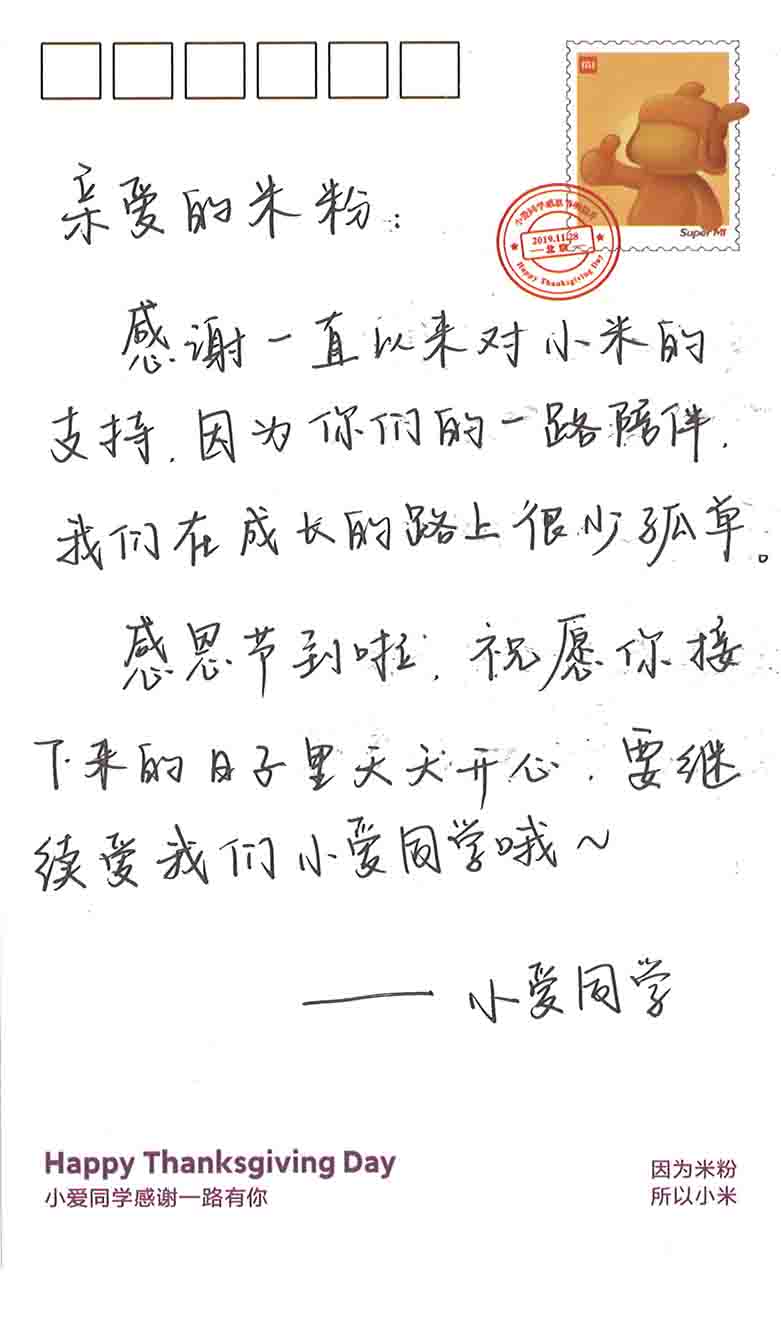 MI
Super MI
2019.11.28
北京
Happy Thanksgiving Day
亲爱的米粉：
感谢一直以来对小米的
支持，因为你们的一路陪伴，
我们在成长的路上很少孤单。
感恩节到啦，祝愿你接
下来的日子里天天开心，要继
续爱我们小爱同学哦～
—— 小爱同学
Happy Thanksgiving Day
小爱同学感谢一路有你
因为米粉
所以小米